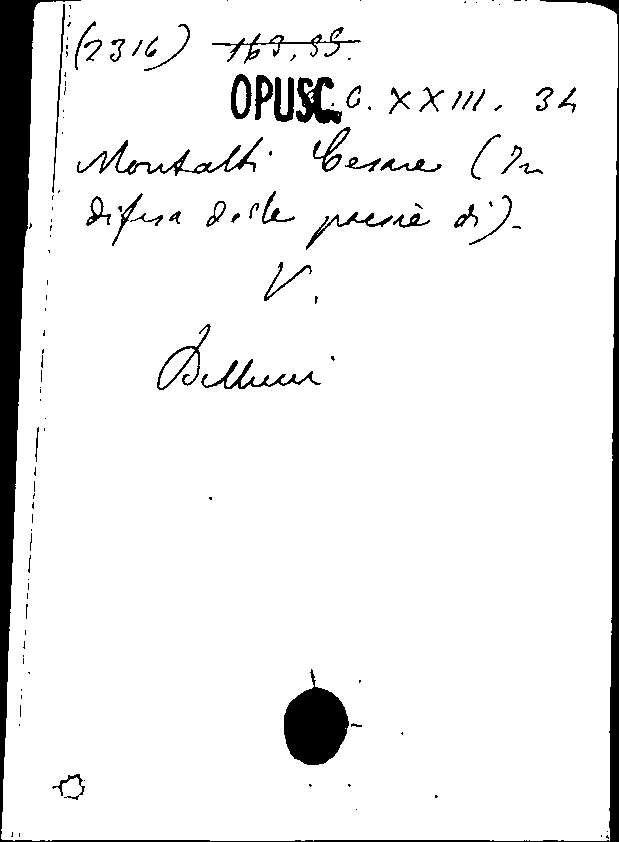 (2316) 163.99.
OPUSC. C. XXIII. 34
Montalti Cesare (In
difesa delle poesie di).
V.